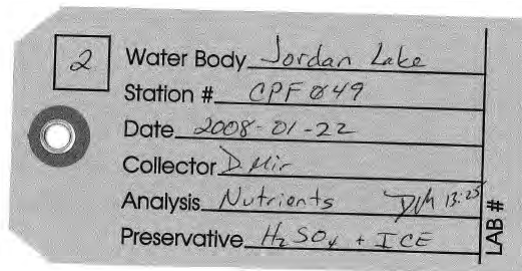 2
Water Body Jordan Lake
Station # CPFØ49
Date 2008-01-22
Collector D. Mir
Analysis Nutrients DM 13:25
Preservative H₂SO₄ + ICE
LAB #